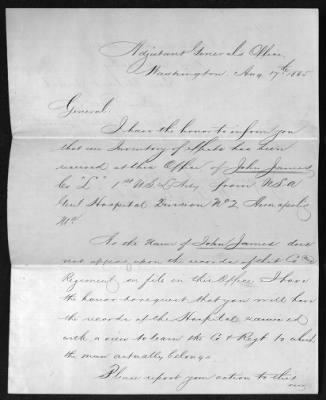 Adjutant General's Office,
Washington Aug. 17th 1865
General.
I have the honor to inform you
that an Inventory of effects has been
received at this Office of John James,
Co "L" 1st U.S. from U.S.A
Genl Hospital Division No 2 Annapolis
Md.
As the name of John James does
not appear upon the records of that Co
Regiment on file in this Office, I have
the honor to request that you will have
the records of the Hospital examined
with a view to learn the Co & Regt to which
the man actually belongs.
Please report your action to this